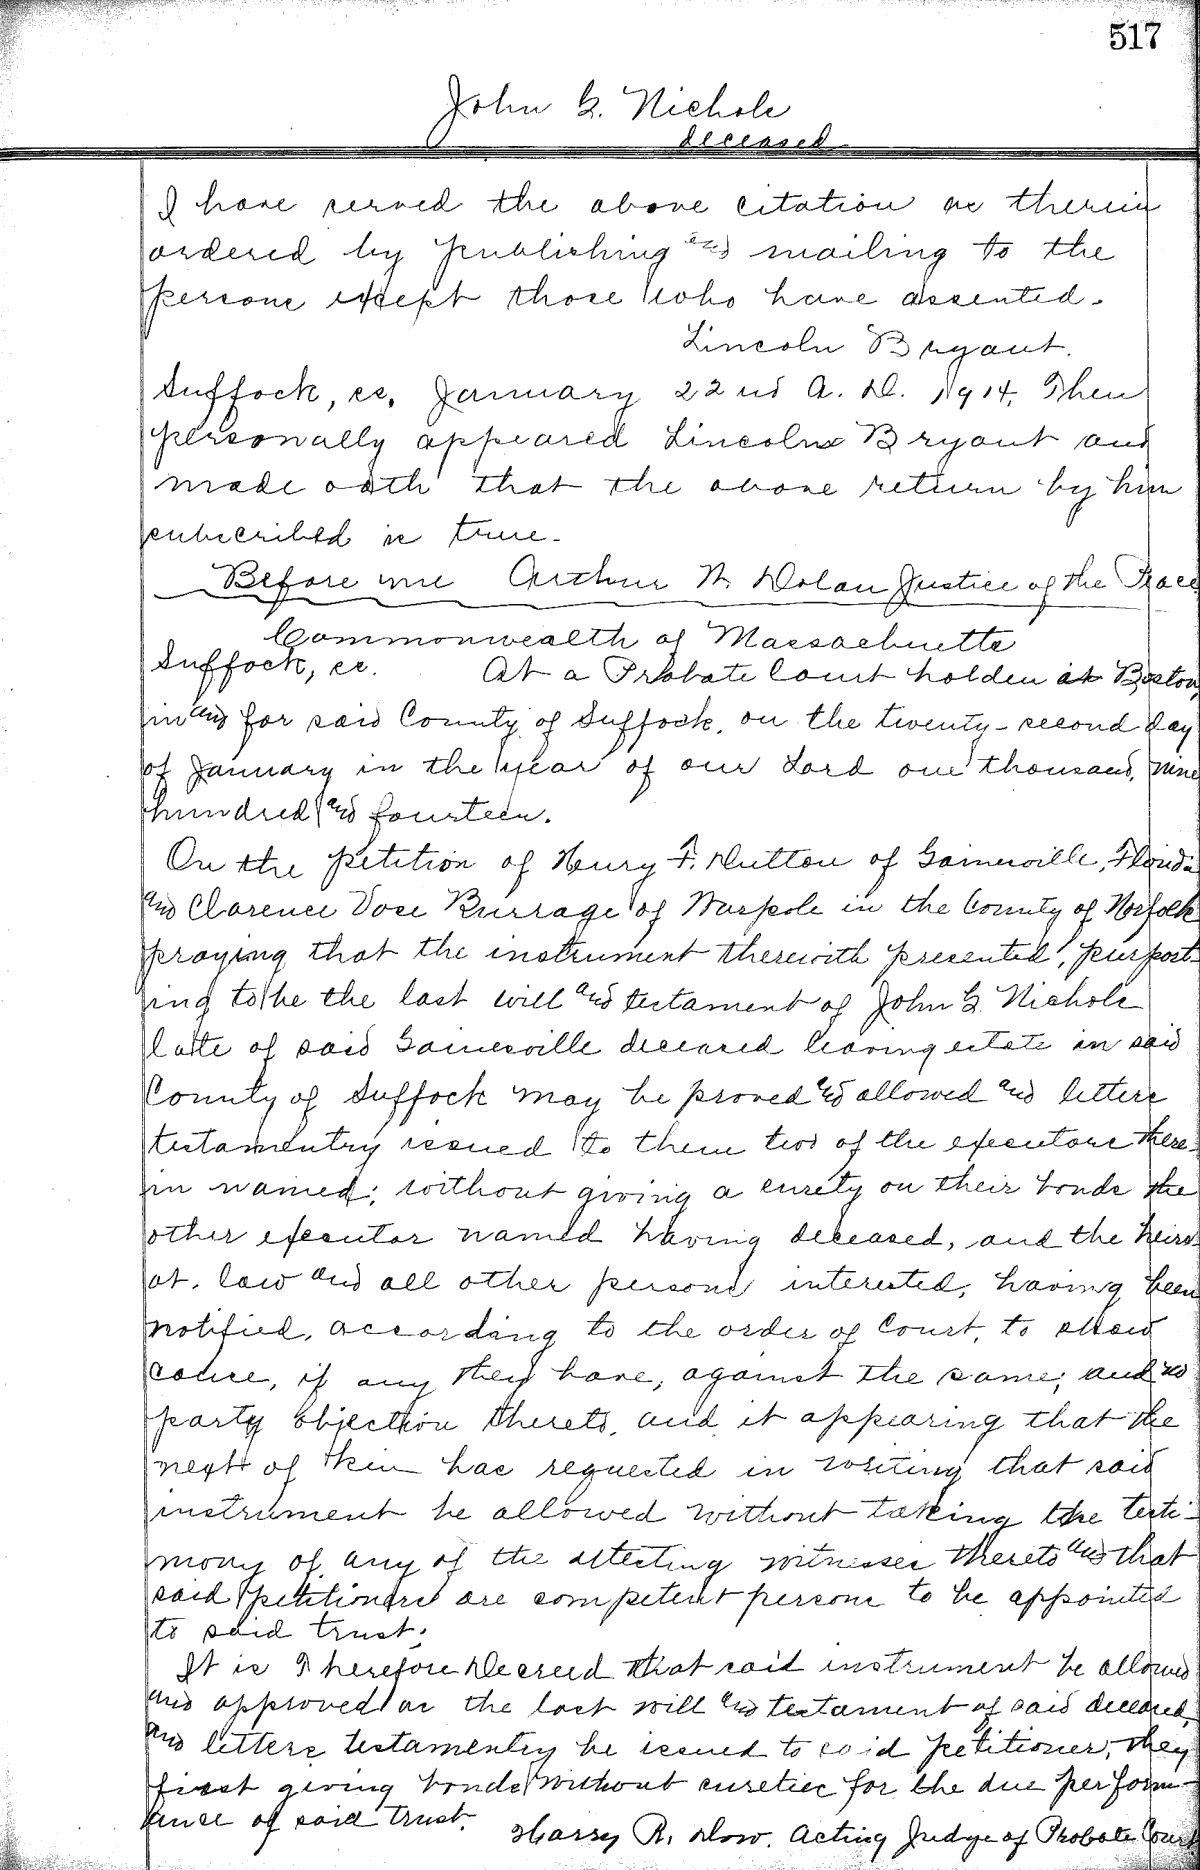 517
John G. Nichols
deceased
I have served the above citation as therein
ordered by publishing and mailing to the
persons except those who have assented.
Lincoln Bryant.
Suffock, ss. January 22nd A. D. 1914. Then
personally appeared Lincoln Bryant and
made oath that the above return by him
subscribed is true.
Before me Arthur W. Dolan Justice of the Peace
Commonwealth of Massachusetts
Suffock, ss. At a Probate Court holden at Boston
in and for said County of Suffock, on the twenty-second day
of January in the year of our Lord one thousand, nine
hundred and fourteen.
On the petition of Henry F. Dutton of Gainesville, Florida
and Clarence Vose Burrage of Warpole in the County of Norfolk
praying that the instrument therewith presented, purport-
ing to be the last will and testament of John G. Nichols
late of said Gainesville deceased leaving estate in said
County of Suffock may be proved and allowed and letters
testamentry issued to them two of the executors there-
in named; without giving a surety on their bonds the
other executor named having deceased, and the heirs-
at. law and all other persons interested, having been
notified, according to the order of Court, to show
cause, if any they have, against the same; and no
party objection thereto, and it appearing that the
next of kin has requested in writing that said
instrument be allowed without taking the testi-
mony of any of the attesting witnesses thereto and that
said petitioners are competent persons to be appointed
to said trust;
It is Therefore Decreed that said instrument be allowed
and approved as the last will and testament of said deceased,
and letters testamentry be issued to said petitioner, they
first giving bonds without sureties for the due perform-
ance of said trust.
Harry R. Dow. Acting Judge of Probate Court